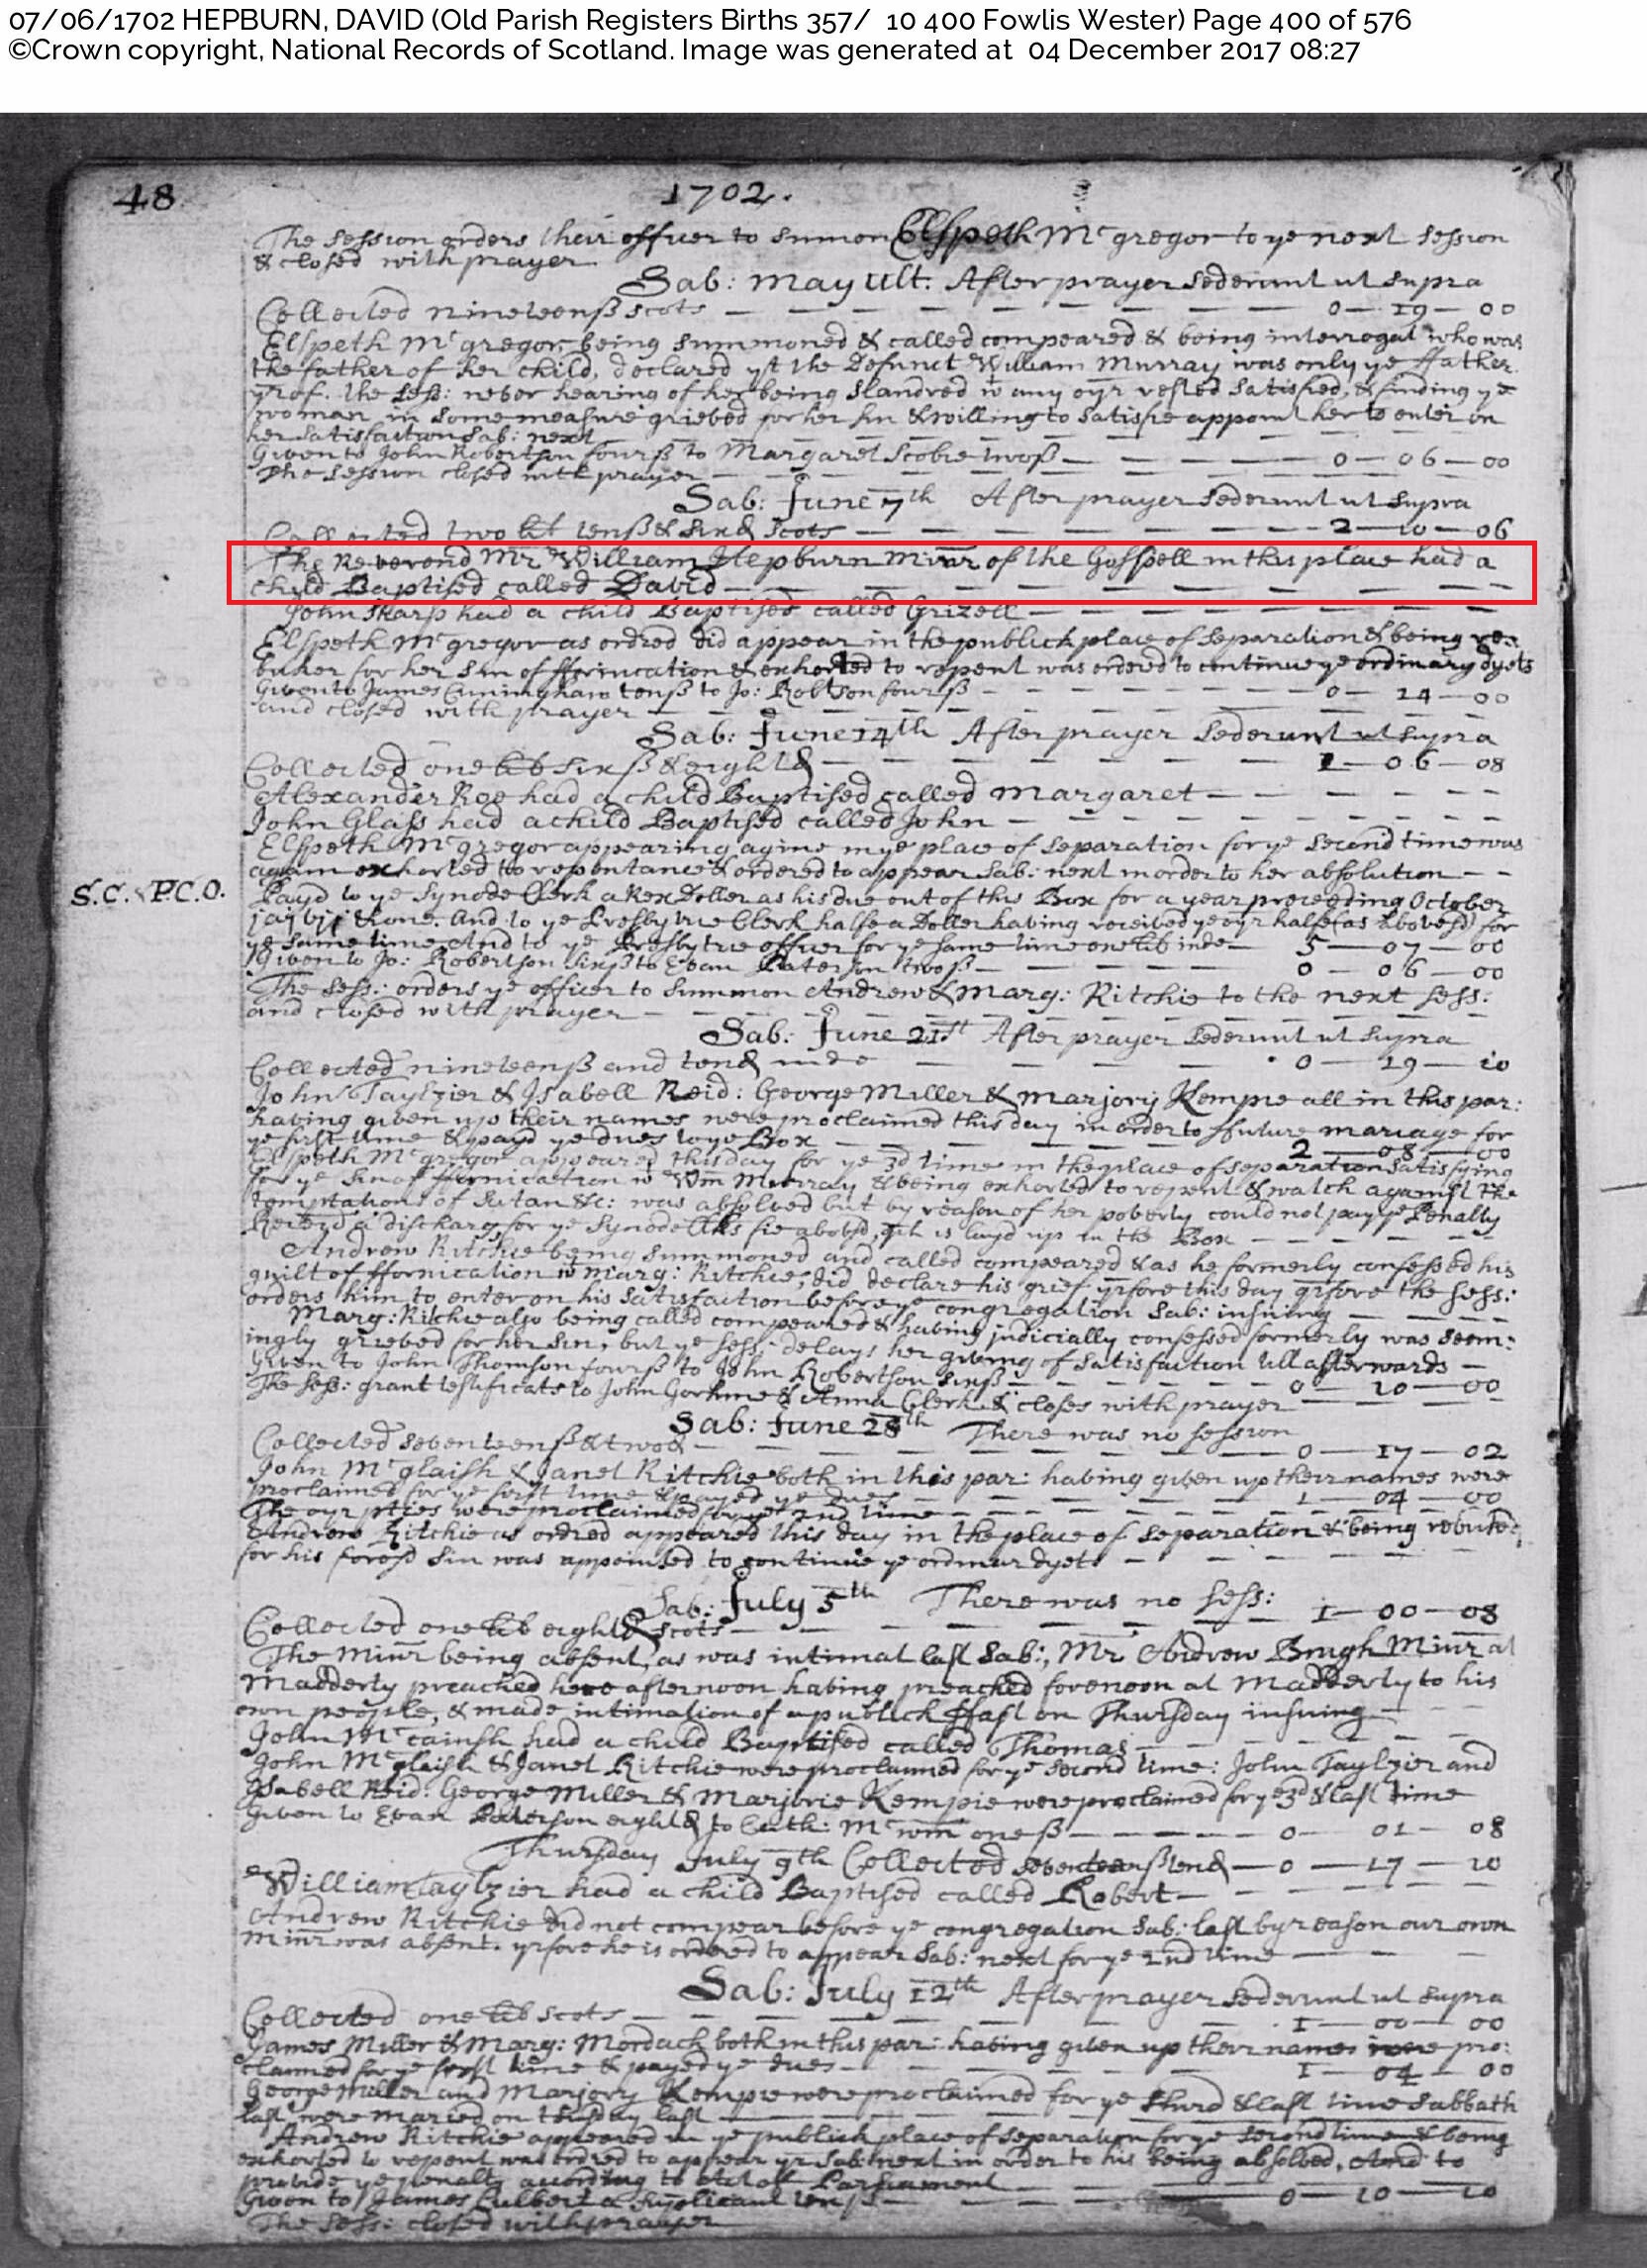 07/06/1702 HEPBURN, DAVID (Old Parish Registers Births 357/ 10 400 Fowlis Wester) Page 400 of 576
©Crown copyright, National Records of Scotland. Image was generated at 04 December 2017 08:27
48 1702.
The session orders their officer to sumon Elspeth Mcgregor to ye next session
& closed with prayer
Sab: may ult. After prayer sederunt ut supra
Collected nineteen ß scots 0 - 19 - 00
Elspeth Mcgregor being summoned & called compeared & being interrogat who was
the father of her child, declared yt the Defunct William Murray was only ye ffather
yrof. the sess: never hearing of her being slandred wt any oyr rested satisfied, & finding ye
woman in some measure grieved for her sin & willing to satisfie appoint her to enter on
her satisfaction Sab: next
Given to John Robertson four ß to Margaret Scobie two ß 0 - 06 - 00
The session closed with prayer
Sab: June 7th After prayer sederunt ut supra
Collected two lib ten ß & six d scots 2 - 10 - 06
The Reverend Mr William Hepburn Minr of the Gosspell in this place had a
child Baptised called David
John Sharp had a child Baptised called Grizell
Elspeth Mcgregor as ordred did appear in the publick place of separation & being re-
buked for her sin of fornication & exhorted to repent was ordered to continue ye ordinary dyets
Given to James Cuningham ten ß to Jo: Robtson four ß 0 - 14 - 00
and closed with prayer
Sab: June 14th After prayer sederunt ut supra
Collected one lib six ß & eight d 1 - 06 - 08
Alexander Roe had a child Baptised called Margaret
John Glass had a child Baptised called John
Elspeth Mcgregor appearing agine in ye place of separation for ye second time was
again exhorted to repentance & ordered to appear Sab: next in order to her absolution
S.C. & P.C.O. Payd to ye Synode Clerk a Rex Doller as his due out of this Box for a year preceeding October
jaj vij & one. And to ye Presbytrie Clerk halfe a Doller having received ye oyr halfe (as abovesd) for
ye same time. And to ye Presbytrie officer for ye same time one lib inde 5 - 07 - 00
Given to Jo: Robertson six ß to Evan Paterson two ß 0 - 06 - 00
The sess: orders ye officer to summon Andrew & Marg: Ritchie to the next sess:
and closed with prayer
Sab: June 21st After prayer sederunt ut supra
Collected nineteen ß and ten d inde 0 - 19 - 10
John Taylzier & Isabell Reid: George Miller & Marjory Kempie all in this par:
having given up their names were proclaimed this day in order to ffuture mariage for
ye first time & payd ye dues to ye Box 2 - 08 - 00
Elspeth Mcgregor appeared this day for ye 3d time in the place of separation satisfying
for ye sin of fornication wt Wm Murray & being exhorted to repent & watch against the
temptations of Satan &c: was absolved but by reason of her poverty could not pay ye Penalty
Received a discharg for ye Synode Clks fie abovsd, qch is layd up in the Box
Andrew Ritchie being summoned and called compeared & as he formerly confessed his
guilt of ffornication wt Marg: Ritchie, did declare his grief yrfore this day qrfore the sess:
orders him to enter on his satisfaction before ye congregation Sab: insuing
Marg: Ritchie also being called compeared & having judicially confessed formerly was seem:
ingly grieved for her sin, but ye sess: delays her giving of satisfaction till afterwards
Given to John Thomson four ß to John Robertson six ß 0 - 10 - 00
The sess: grant testificats to John & Anna Clerk & closes with prayer
Sab: June 28th There was no session
Collected seventeen ß & two d 0 - 17 - 02
John Mcglaish & Janet Ritchie both in this par: having given up their names were
proclaimed for ye first time & payed ye dues 1 - 04 - 00
The oyr pties were proclaimed for ye 2nd time
Andrew Ritchie as ordred appeared this day in the place of separation & being rebuked
for his foresd sin was appointed to continue ye ordinar dyets
Sab: July 5th There was no sess:
Collected one lib eight d scots 1 - 00 - 08
The Minr being absent, as was intimat last Sab:, Mr Andrew Brugh Minr at
Madderty preached here afternoon having preached forenoon at Madderty to his
own people, & made intimation of a publick ffast on Thursday insuing
John Mccainsh had a child Baptised called Thomas
John Mcglaish & Janet Ritchie were proclaimed for ye second time: John Taylzier and
Isabell Reid: George Miller & Marjorie Kempie were proclaimed for ye 3d & last time
Given to Evan Paterson eight d to Cath: Mcwm one ß 0 - 01 - 08
Thursday July 9th Collected seventeen ß ten d 0 - 17 - 10
William Taylzier had a child Baptised called Robert
Andrew Ritchie did not compear before ye congregation Sab: last by reason our own
Minr was absent. yrfore he is ordered to appear Sab: next for ye 2nd time
Sab: July 12th After prayer sederunt ut supra
Collected one lib scots 1 - 00 - 00
James Miller & Marg: Mordach both in this par: having given up their names were pro:
claimed for ye first time & payed ye dues 1 - 04 - 00
George Miller and Marjory Kempie were proclaimed for ye third & last time Sabbath
last were maried on last
Andrew Ritchie appeared in ye publick place of separation for ye second time & being
exhorted to repent was ordred to appear yr Sab: next in order to his being absolved, And to
provide ye penalty according to Act of Parliament
Given to James Culbert a suplicant ten ß 0 - 10 - 10
The sess: closed with prayer